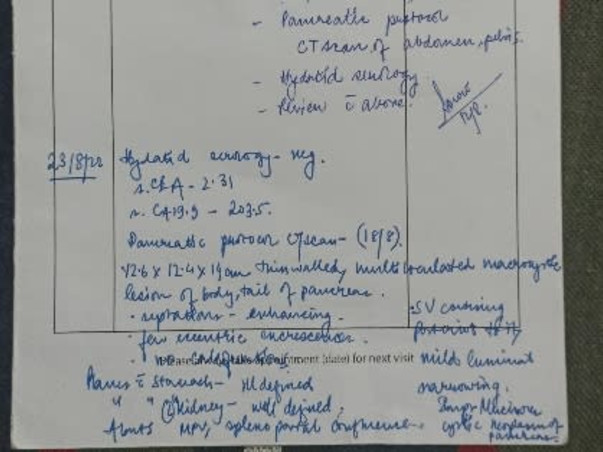 - Pancreatic protocol
CT scan of abdomen, pelvis.
- Hydatid serology
- Review c̄ above.
23/8/22 Hydatid serology - neg.
s. CEA - 2.31
s. CA19.9 - 203.5.
Pancreatic protocol CT scan - (18/8).
12.6 x 12.4 x 19 cm thin walled, multiloculated macrocystic
lesion of body, tail of pancreas.
· septations - enhancing.
· few eccentric excrescences.
Please take appointment (date) for next visit
Planes c̄ Stomach - Ill defined
" " (L) kidney - well defined.
Abuts MPV, splenoportal confluence.
- SV coursing
mild luminal
narrowing.
Mucinous
cystic neoplasm of
pancreas.